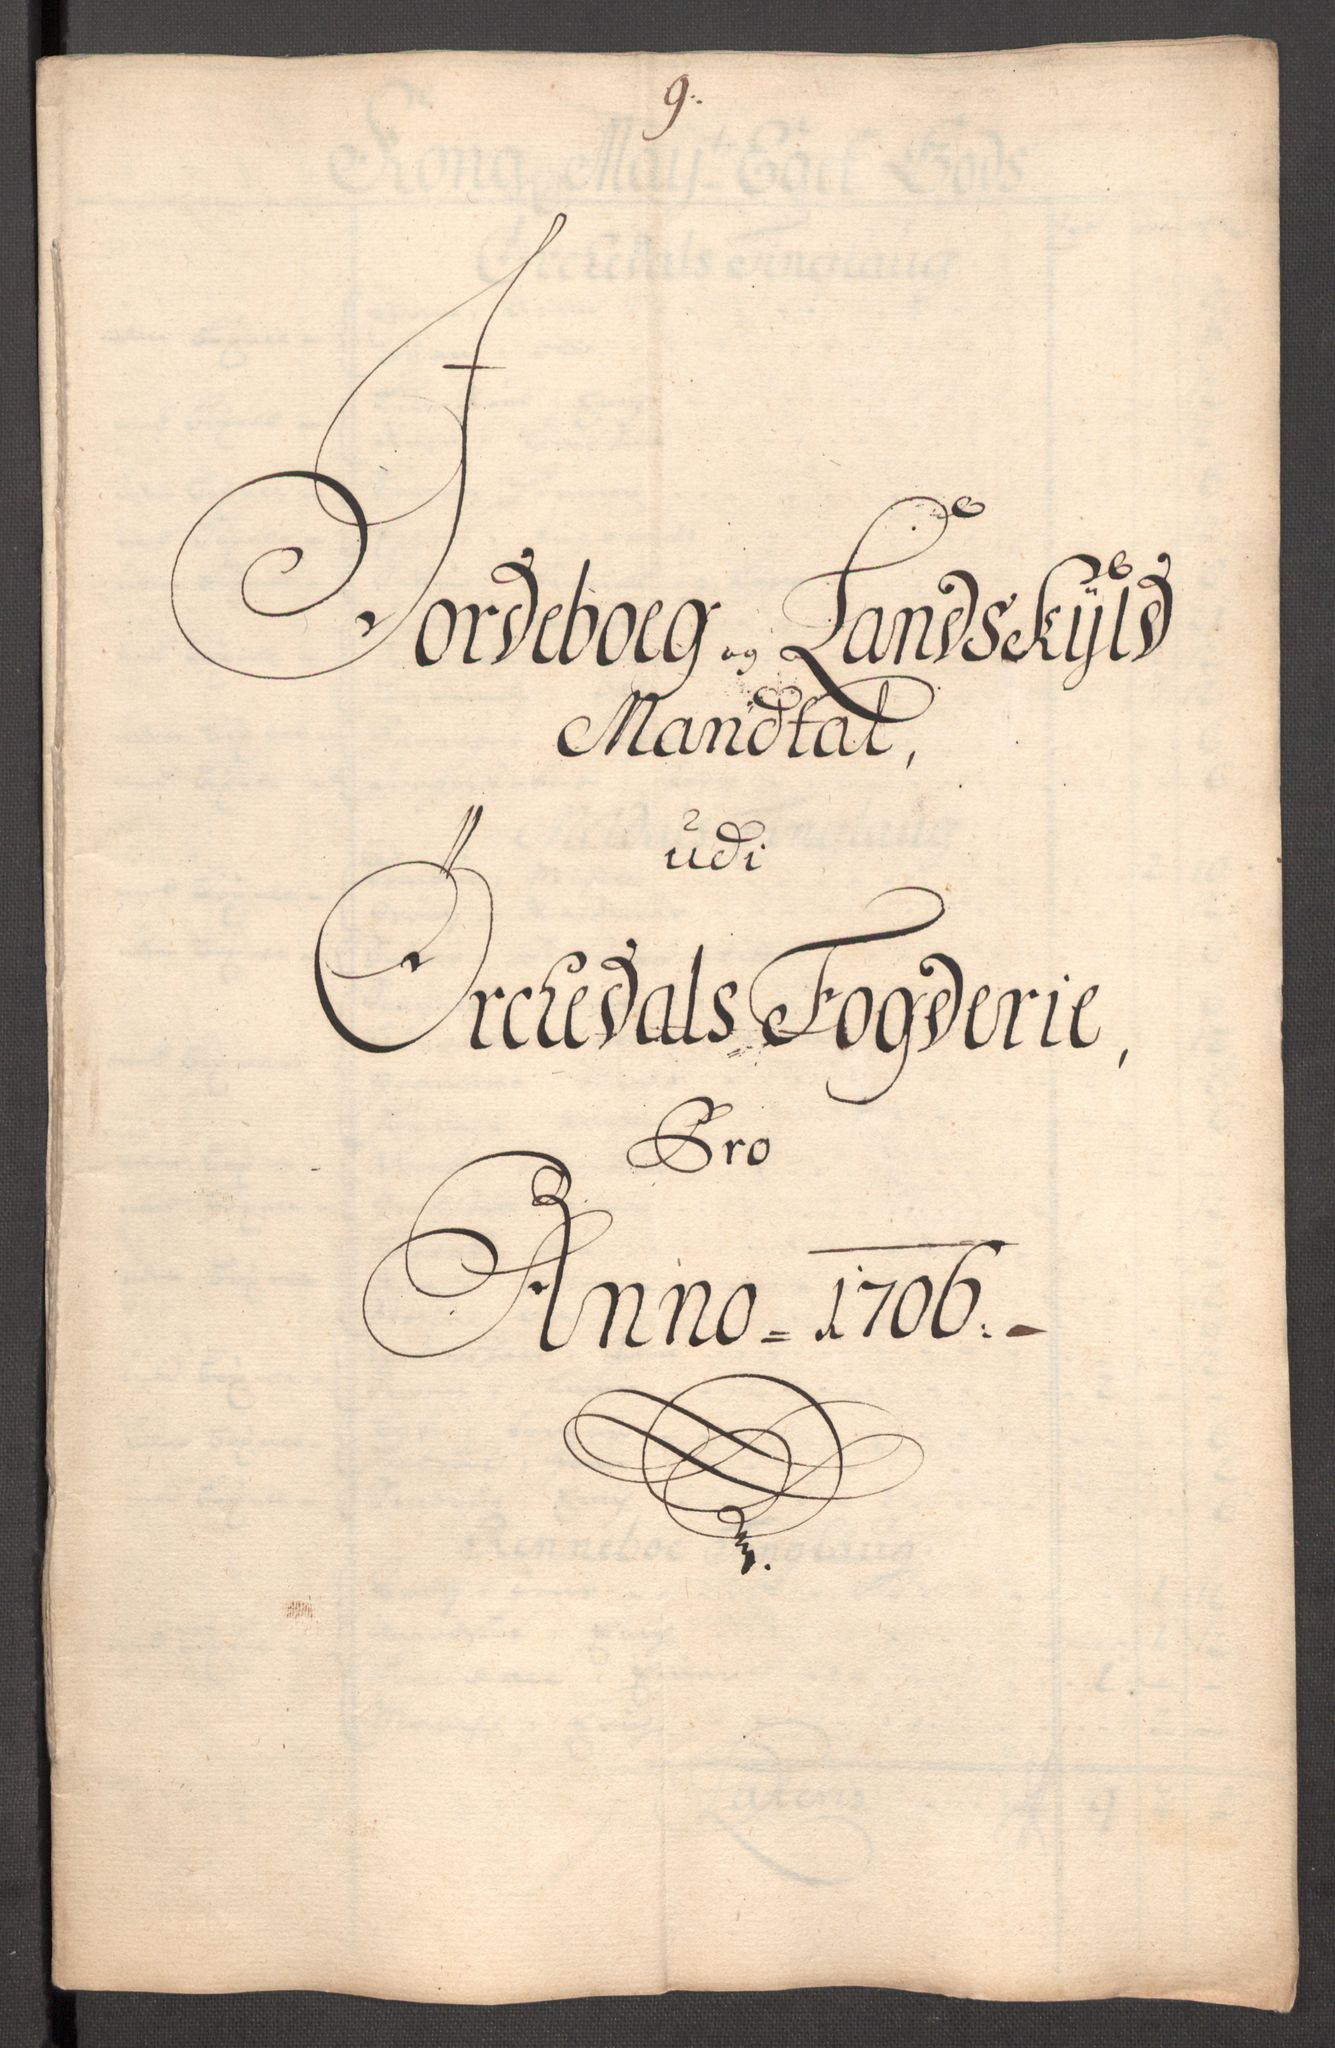 9.
Jordeboeg og Landskÿld
Mandtal,
udi
Orckedals Fogderie,
Pro
Anno = 1706.